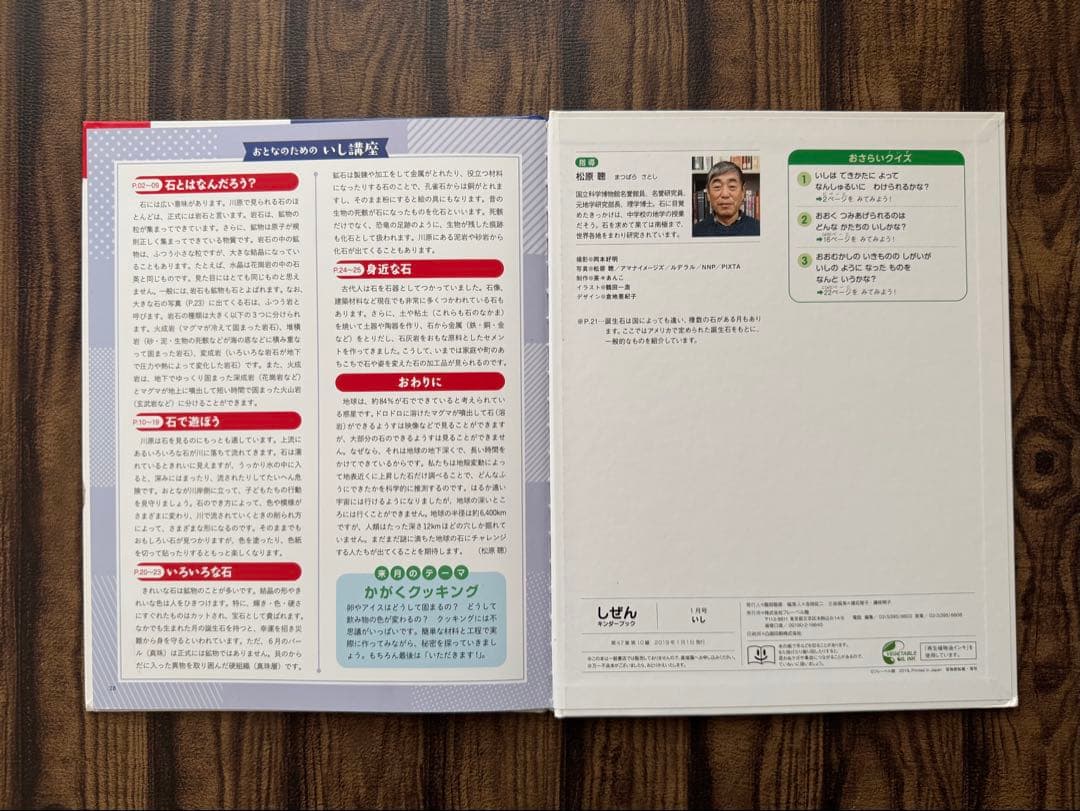 おとなのための いし講座
P.02〜09 石とはなんだろう?
石には広い意味があります。川原で見られる石のほ
とんどは、正式には岩石と言います。岩石は、鉱物の
粒が集まってできています。さらに、鉱物は原子が規
則正しく集まってできている物質です。岩石の中の鉱
物は、ふつう小さな粒ですが、大きな結晶になってい
ることもあります。たとえば、水晶は花崗岩の中の石
英と同じものです。見た目にはとても同じものと思え
ません。一般には、岩石も鉱物も石とよばれます。なお、
大きな石の写真(P.23)に出てくる石は、ふつう岩と
呼びます。岩石の種類は大きく以下の3つに分けられ
ます。火成岩(マグマが冷えて固まった岩石)、堆積
岩(砂・泥・生物の死骸などが海の底などに積み重な
って固まった岩石)、変成岩(いろいろな岩石が地下
で圧力や熱によって変化した岩石)です。また、火成
岩は、地下でゆっくり固まった深成岩(花崗岩など)
とマグマが地上に噴出して短い時間で固まった火山岩
(玄武岩など)に分けることができます。
P.10〜19 石で遊ぼう
川原は石を見るのにもっとも適しています。上流に
あるいろいろな石が川に落ちて流れてきます。石は濡
れているときれいに見えますが、うっかり水の中に入
ると、深みにはまったり、流されたりしてたいへん危
険です。おとなが川岸側に立って、子どもたちの行動
を見守りましょう。石のでき方によって、色や模様が
さまざまに変わり、川で流されていくときの削られ方
によって、さまざまな形になるのです。そのままでも
おもしろい石が見つかりますが、色を塗ったり、色紙
を切って貼ったりするともっと楽しくなります。
P.20〜23 いろいろな石
きれいな石は鉱物のことが多いです。結晶の形やき
れいな色は人をひきつけます。特に、輝き・色・硬さ
にすぐれたものはカットされ、宝石として貴ばれます。
なかでも生まれ月の誕生石を持つと、幸運を招き災
難から身を守るといわれています。ただ、6月のパー
ル(真珠)は正式には鉱物ではありません。貝のから
だに入った異物を取り囲んだ硬組織(真珠層)です。
28
鉱石は製錬や加工をして金属がとれたり、役立つ材料
になったりする石のことで、孔雀石からは銅がとれま
すし、そのまま粉にすると絵の具にもなります。昔の
生物の死骸が石になったものを化石といいます。死骸
だけでなく、恐竜の足跡のように、生物が残した痕跡
も化石として扱われます。川原にある泥岩や砂岩から
化石が出てくることもあります。
P.24〜25 身近な石
古代人は石を石器としてつかっていました。石像、
建築材料など現在でも非常に多くつかわれている石も
あります。さらに、土や粘土(これらも石のなかま)
を焼いて土器や陶器を作り、石から金属(鉄・銅・金
など)をとりだし、石灰岩をおもな原料としたセメン
トを作ってきました。こうして、いまでは家庭や町のあ
ちこちで石や姿を変えた石の加工品が見られるのです。
おわりに
地球は、約84%が石でできていると考えられて
いる惑星です。ドロドロに溶けたマグマが噴出して石(溶
岩)ができるようすは映像などで見ることができます
が、大部分の石のできるようすは見ることができませ
ん。なぜなら、それは地球の地下深くで、長い時間を
かけてできているからです。私たちは地殻変動によっ
て地表近くに上昇した石だけ調べることで、どんなふ
うにできたかを科学的に推測するのです。はるか遠い
宇宙には行けるようになりましたが、地球の深いとこ
ろには行くことができません。地球の半径は約6,400km
ですが、人類はたった深さ12kmほどの穴しか掘れて
いません。まだまだ謎に満ちた地球の石にチャレンジ
する人たちが出てくることを期待します。 (松原 聰)
来月のテーマ
かがくクッキング
卵やアイスはどうして固まるの? どうして
飲み物の色が変わるの? クッキングには不
思議がいっぱいです。簡単な材料と工程で実
際に作ってみながら、秘密を探っていきまし
ょう。もちろん最後は「いただきます!」。
指導
松原 聰 まつばら さとし
国立科学博物館名誉館員、名誉研究員、
元地学研究部長、理学博士。石に目覚
めたきっかけは、中学校の地学の授業
だそう。石を求めて果ては南極まで、
世界各地をまわり研究されています。
撮影●岡本好明
写真●松原 聰/アマナイメージズ/ルデラル/NNP/PIXTA
制作●菜々あんこ
イラスト●鶴田一浩
デザイン●倉地亜紀子
※P.21…誕生石は国によっても違い、複数の石がある月もあり
ます。ここではアメリカで定められた誕生石をもとに、
一般的なものを紹介しています。
おさらいクイズ
1 いしは てきかたに よって
なんしゅるいに わけられるかな?
➡2ページを みてみよう!
2 おおく つみあげられるのは
どんな かたちの いしかな?
➡16ページを みてみよう!
3 おおむかしの いきものの しがいが
いしの ように なった ものを
なんと いうかな?
➡22ページを みてみよう!
しぜん
キンダーブック
1月号
いし
第47集第10編 2019年1月1日発行
発行所●株式会社フレーベル館
印刷所●凸版印刷株式会社
VEGETABLE
OIL INK
「再生植物油インキ」を
使用しています。